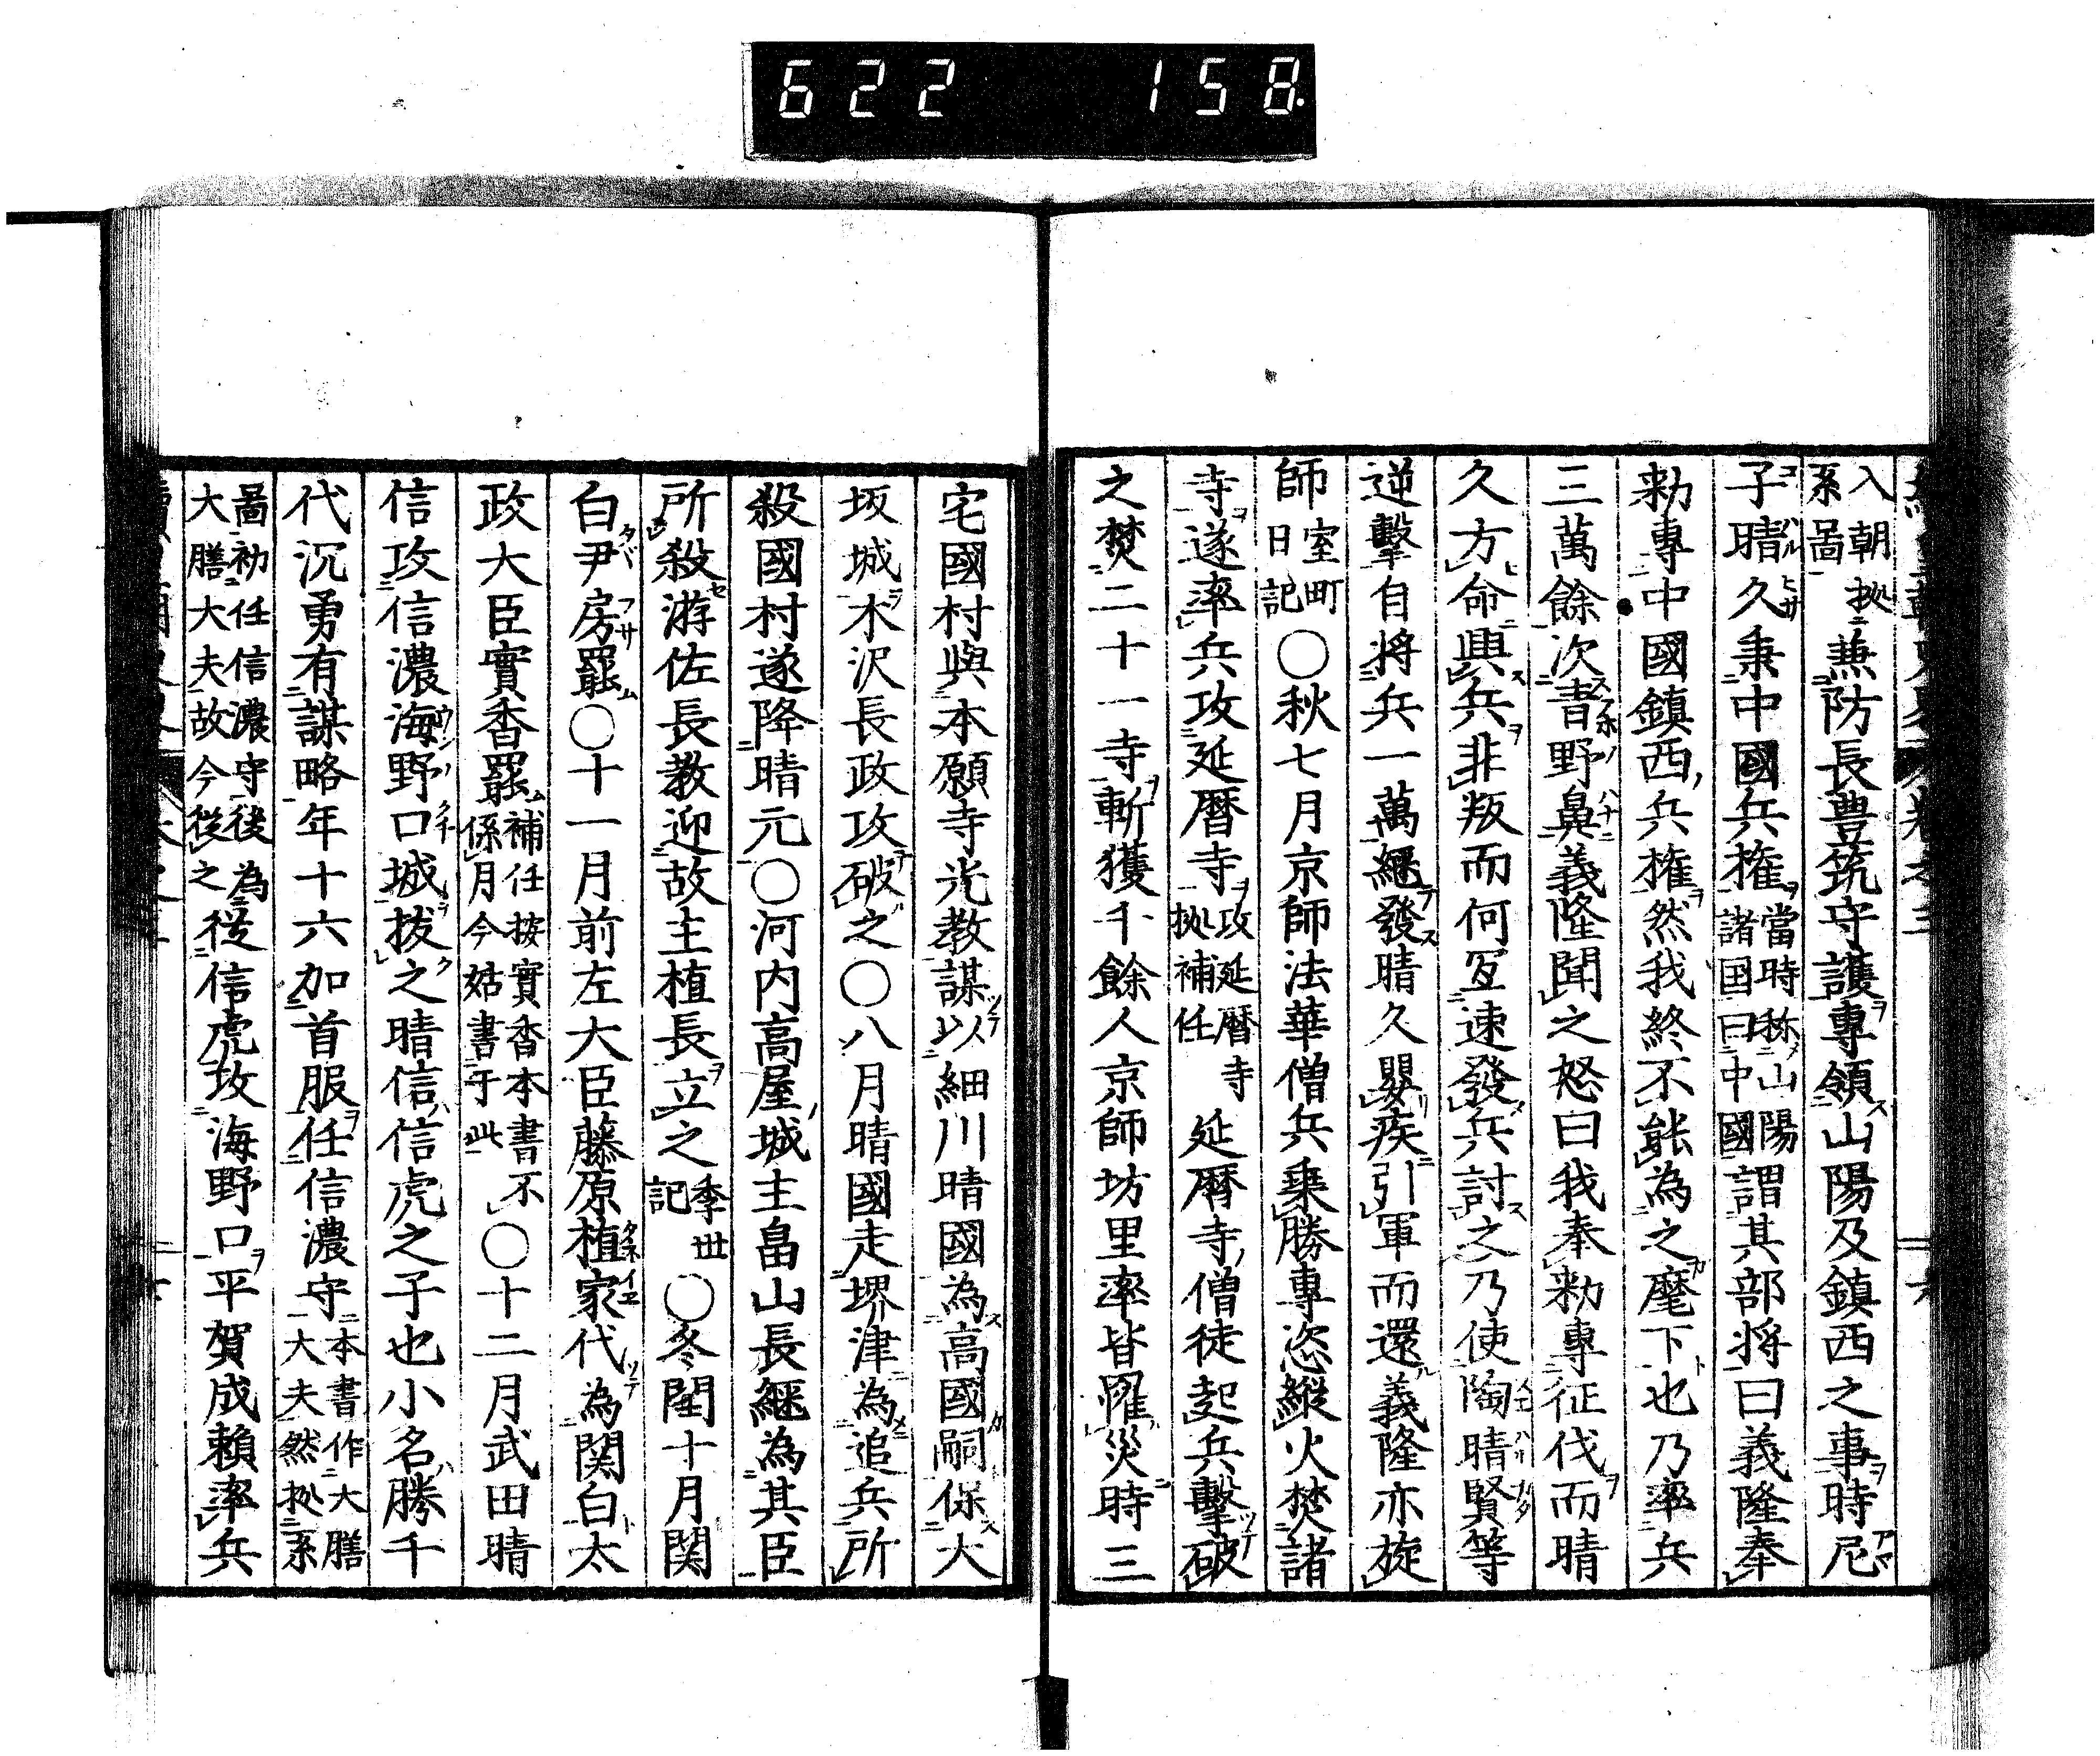 622 158
入朝拠系圖兼防長豊筑守護專領山陽及鎮西之事時尼
子晴久秉中國兵權當時称山陽諸国曰中國謂其部将曰義隆奉
勅專中國鎮西兵権然我終不能為之麾下也乃率兵
三萬餘次吉野鼻義隆聞之怒曰我奉勅專征伐而晴
久方命興兵非叛而何宜速發兵討之乃使陶晴賢等
逆擊自将兵一萬継發晴久嬰疾引軍而還義隆亦旋
師室町日記〇秋七月京師法華僧兵乗勝專恣縱火焚諸
寺遂率兵攻延暦寺攻延暦寺拠補任延暦寺僧徒起兵擊破
之焚二十一寺斬獲千餘人京師坊里率皆罹災時三
宅國村與本願寺光教謀以細川晴國為高國嗣保大
坂城木沢長政攻破之〇八月晴國走堺津為追兵所
殺國村遂降晴元〇河内高屋城主畠山長継為其臣
所殺游佐長教迎故主植長立之季世記〇冬閏十月関
白尹房罷〇十一月前左大臣藤原植家代為関白太
政大臣實香罷補任按實香本書不係月今姑書于此〇十二月武田晴
信攻信濃海野口城抜之晴信信虎之子也小名勝千
代沉勇有謀略年十六加首服任信濃守本書作大膳大夫然拠系
圖初任信濃守後為大膳大夫故今從之從信虎攻海野口平賀成頼率兵